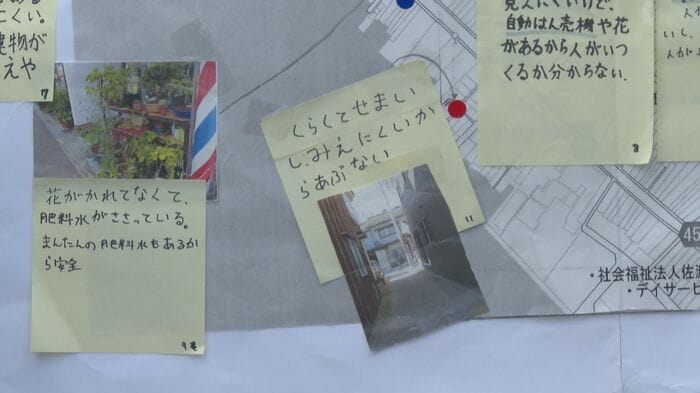 くい。
建物が
えや
7
花がかれてなくて、
肥料水がささっている。
まんたんの肥料水もあるか
ら安全
9
くらくてせまい
し、みえにくいか
らあぶない
11
見えにくいけど、
自動はん売機や花
があるから人がいつ
くるか分からない.
8
いし、
45
・社会福祉法人佐
・デイサービ